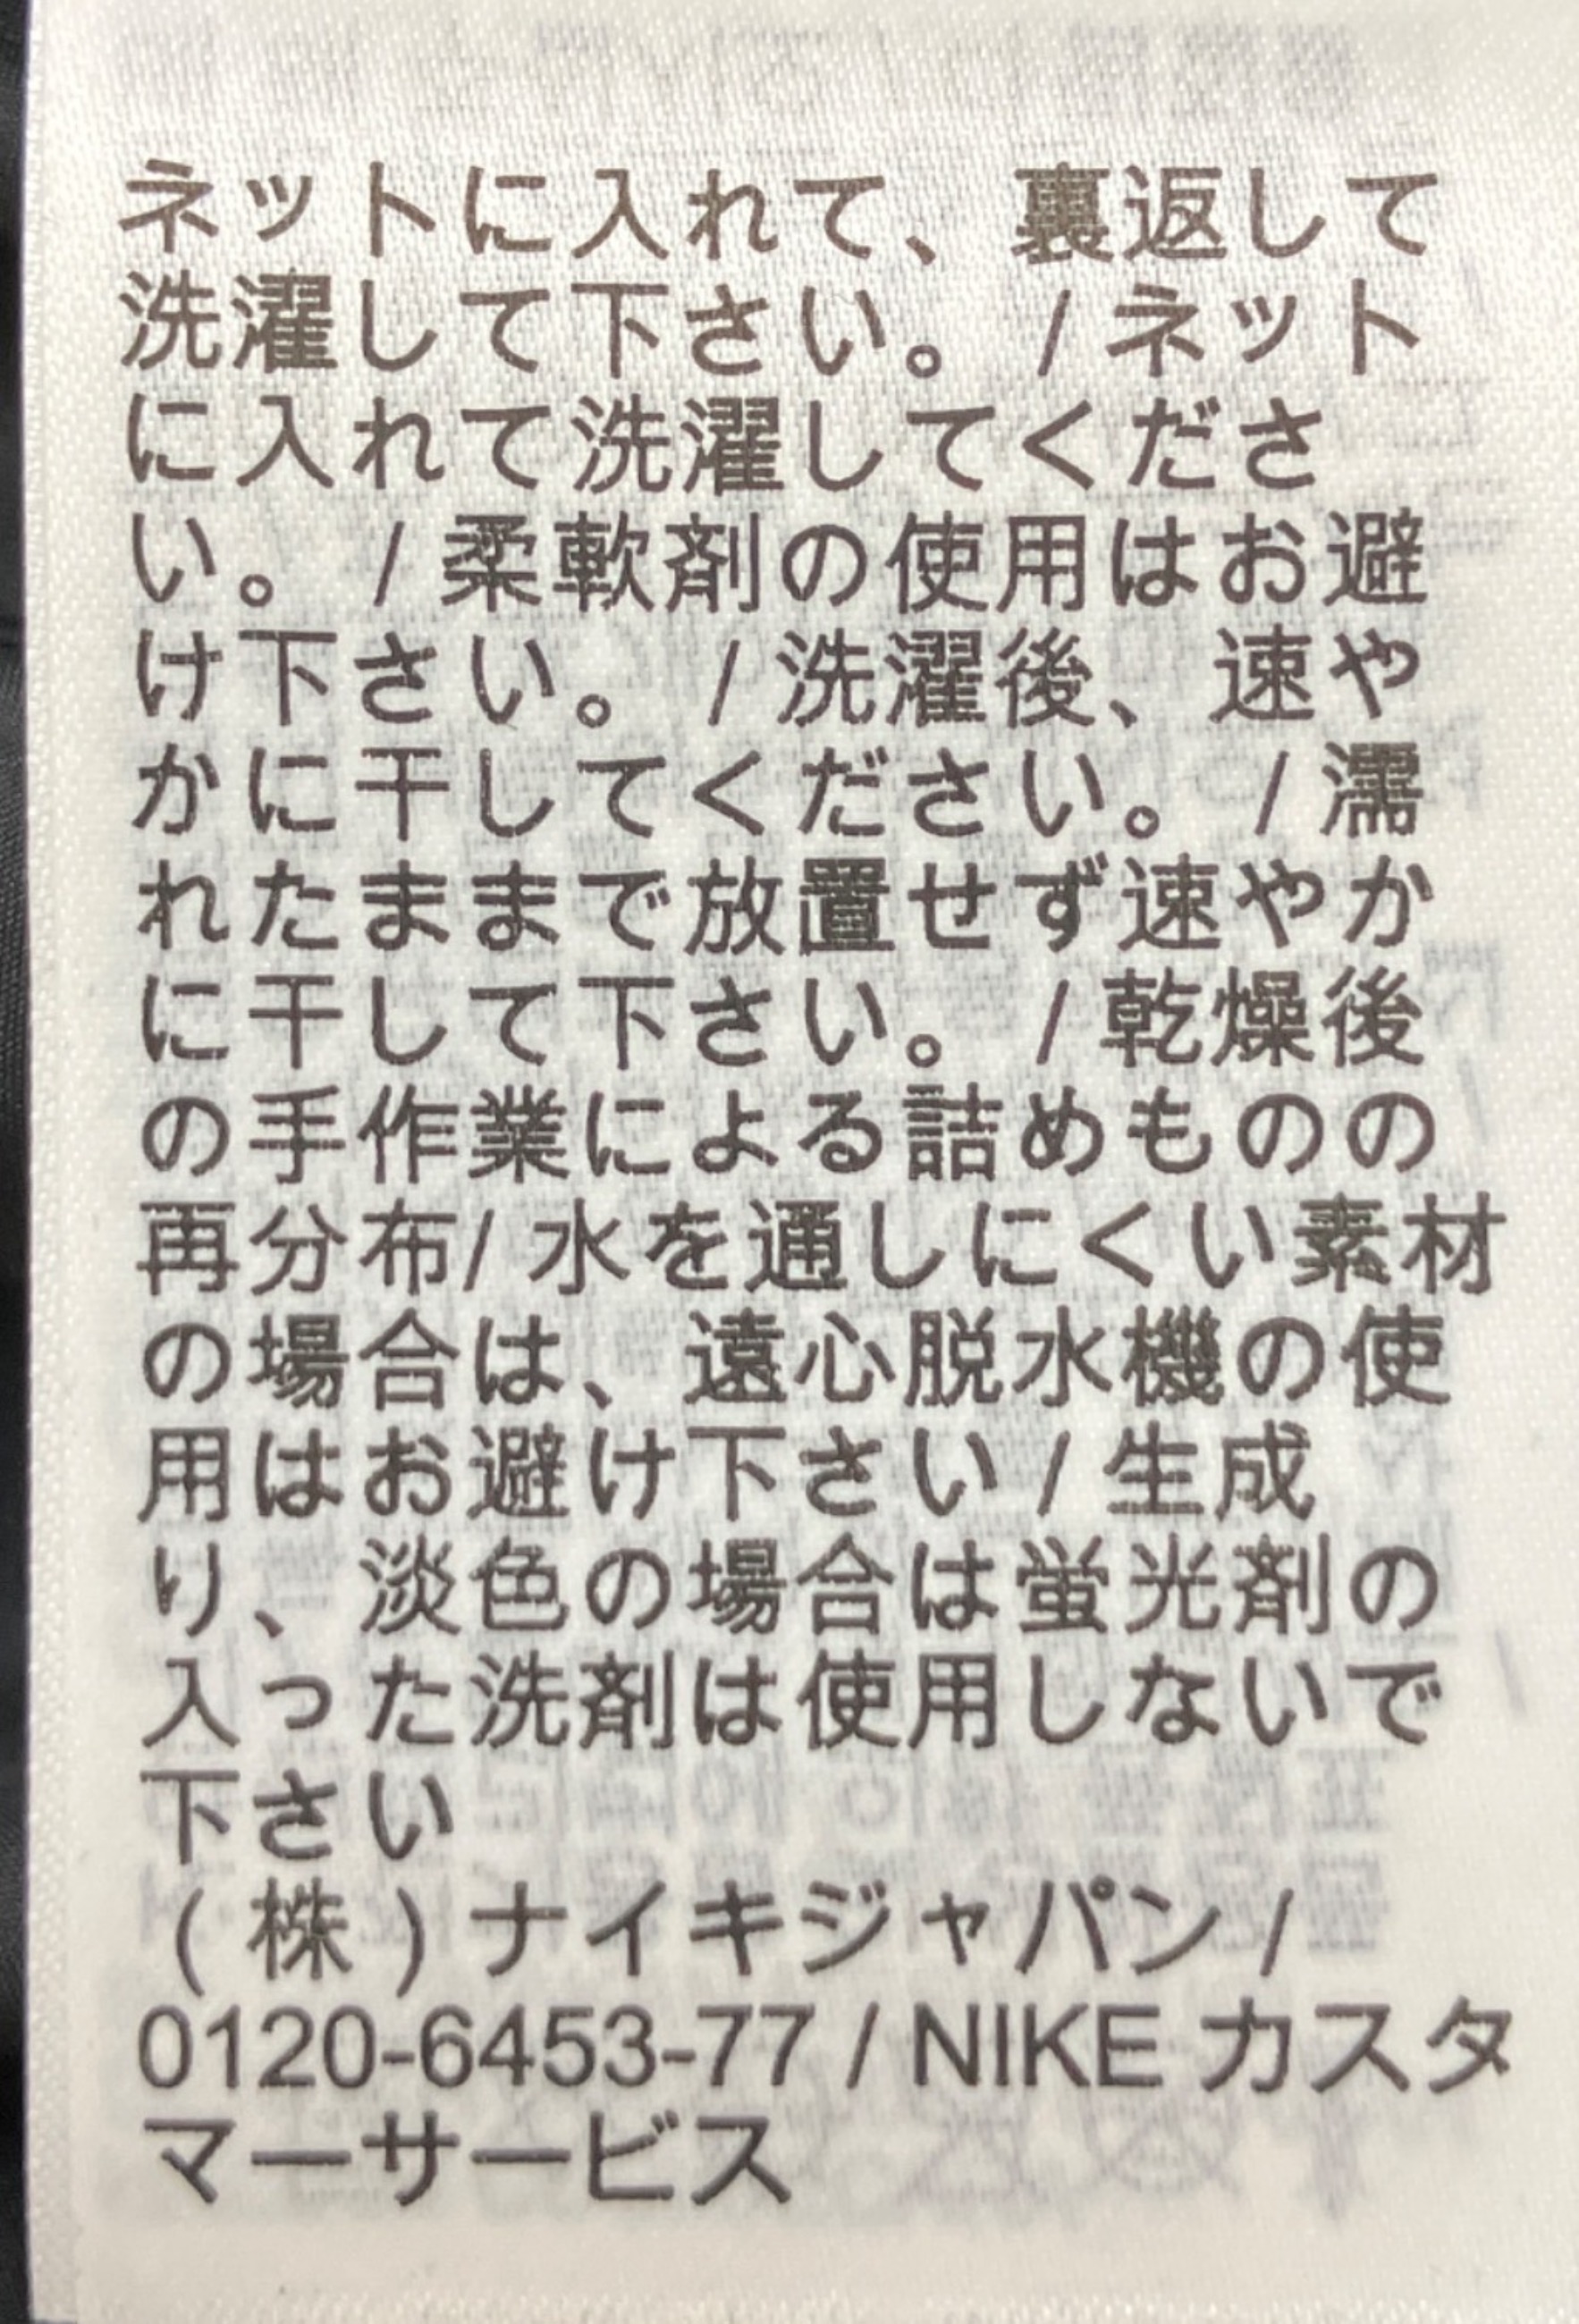 ネットに入れて、裏返して
洗濯して下さい。 / ネット
に入れて洗濯してくださ
い。 / 柔軟剤の使用はお避
け下さい。 / 洗濯後、速や
かに干してください。 / 濡
れたままで放置せず速やか
に干して下さい。 / 乾燥後
の手作業による詰めものの
再分布/ 水を通しにくい素材
の場合は、遠心脱水機の使
用はお避け下さい / 生成
り、淡色の場合は蛍光剤の
入った洗剤は使用しないで
下さい
(株)ナイキジャパン /
0120-6453-77 / NIKE カスタ
マーサービス